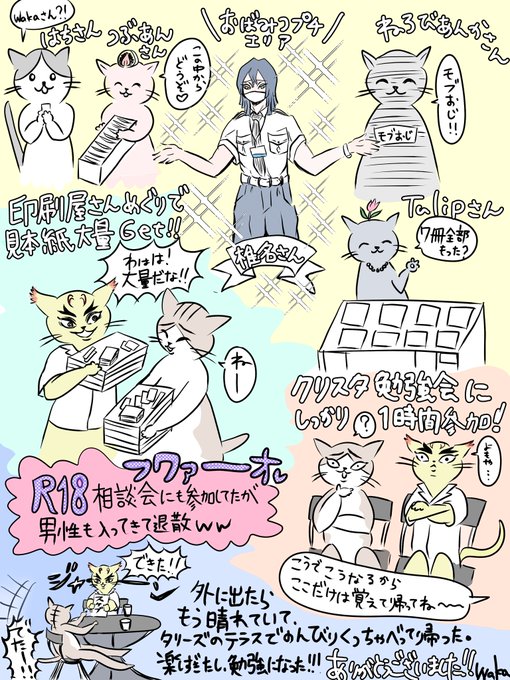 Wakaさん?!
はちさん
つぶあん
さん
この中から
どうぞ♡
おばみつプチ
エリア
ねろびあんかさん
モブおじ!!
モブおじ
椎名さん
Tulipさん
7冊全部
もった?
印刷屋さんめぐりで
見本紙大量Get!!
わはは!
大量だな!!
ねー
クリスタ勉強会に
しっかり1時間参加!
?
よもや…
こうでこうなるから
ここだけは覚えて帰ってね〜〜
フワァーオ
R18相談会にも参加してたが
男性も入ってきて退散ww
できた!!
でたー!!
外に出たら
もう晴れていて、
タリーズのテラスでのんびりくっちゃべって帰った。
楽しかったし、勉強になった!!!
ありがとうございました!!
waka